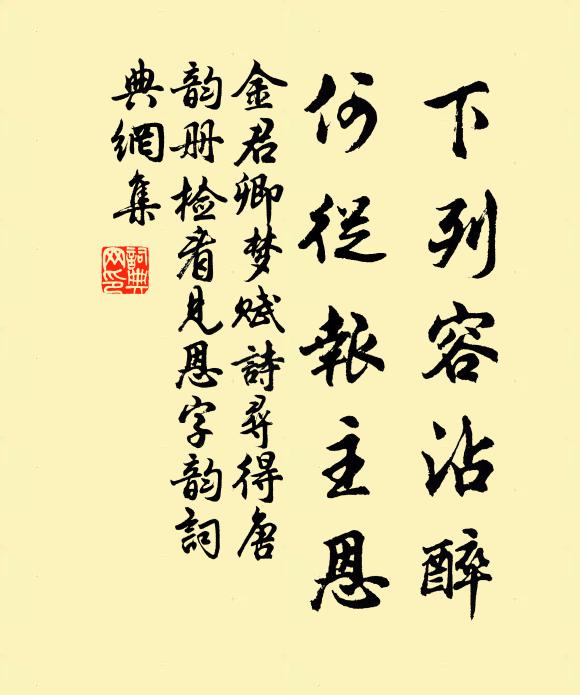 下列容沾醉
何從報主恩
金君卿梦赋詩尋得唐
韵册检看見恩字韵詞
典網集
詞典網印